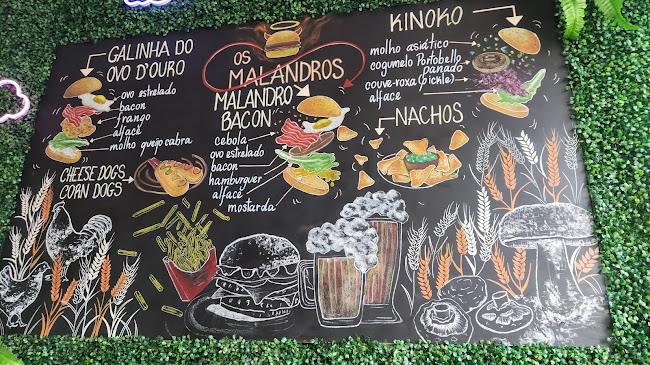 GALINHA DO
OVO D'OURO
ovo estrelado
bacon
frango
alface
molho queijo cabra
CHEESE DOGS
CORN DOGS
OS
MALANDROS
MALANDRO
BACON
cebola
ovo estrelado
bacon
hamburguer
alface
mostarda
KINOKO
molho asiático
cogumelo Portobello
panado
couve-roxa (pickle)
alface
NACHOS